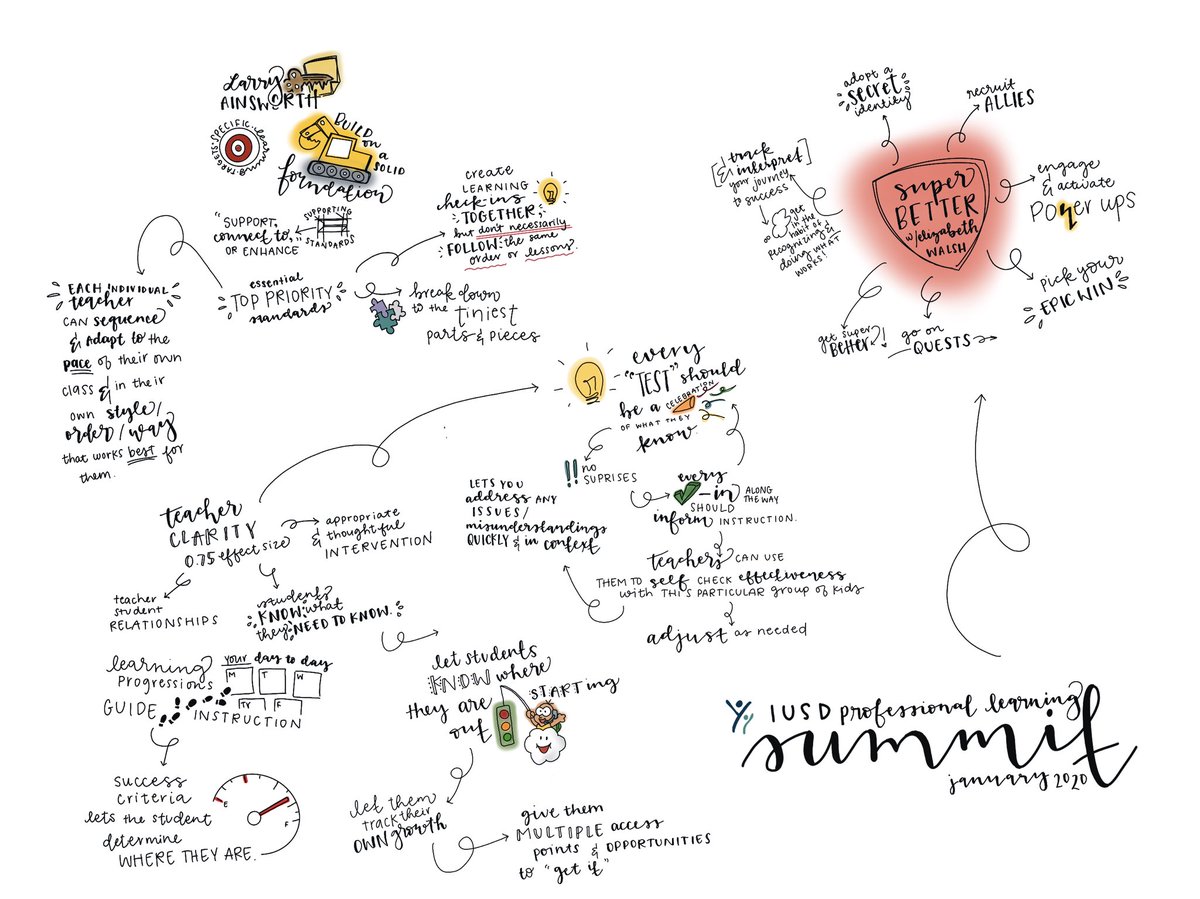 Larry
AINSWORTH
SPECIFIC learning TARGETS
BUILD
on
a
SOLID
foundation
"SUPPORT,
connect to,
OR ENHANCE
SUPPORTING
STANDARDS
essential
TOP PRIORITY
standards
create
LEARNING
check-ins
TOGETHER
but don't necessarily
FOLLOW the same
order or lesson.
break down
to the tiniest
parts & pieces
EACH INDIVIDUAL
teacher
CAN sequence
& Adapt to the
pace of their own
class & in their
own style/
order/way
that works best for
them.
teacher
CLARITY
0.75 effect size
appropriate
& thoughtful
INTERVENTION
teacher
student
RELATIONSHIPS
students
KNOW what
they NEED TO KNOW.
learning
PROGRESSIONS
GUIDE
INSTRUCTION
your day to day
M T W
TR F
success
criteria
lets the student
determine
WHERE THEY ARE.
E
F
let students
KNOW where
they are
STARTING
out
let them
track their
OWN growth
give them
MULTIPLE access
points & OPPORTUNITIES
to "get it"
every
"TEST" should
be a CELEBRATION
OF WHAT THEY
know.
!! no
SUPRISES
every
-in
SHOULD
inform INSTRUCTION.
ALONG
THE WAY
LETS YOU
address ANY
ISSUES/
misunderstandings
QUICKLY & in context
teachers CAN USE
THEM TO self CHECK effectiveness
with THIS particular group of kids
adjust as needed
super
BETTER
w/elizabeth
WALSH
adopt a
SECRET
identity
recruit
ALLIES
engage
& activate
POWER UPS
pick your
EPIC WIN
go on
QUESTS
get super
BETTER?!
[& track
interpret]
your journey
to success
get
in the
habit of
recognizing &
doing WHAT
WORKS!
IUSD professional learning
summit
january 2020